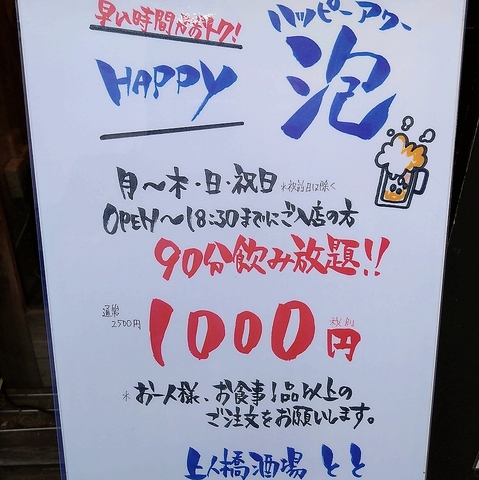 早い時間がおトク!
ハッピーアワー
HAPPY 泡
月〜木・日・祝日 *祝前日は除く
OPEN〜18:30までにご入店の方
90分飲み放題!!
通常
2500円
1000円
税別
*お一人様、お食事1品以上の
ご注文をお願いします。
上人橋酒場 とと